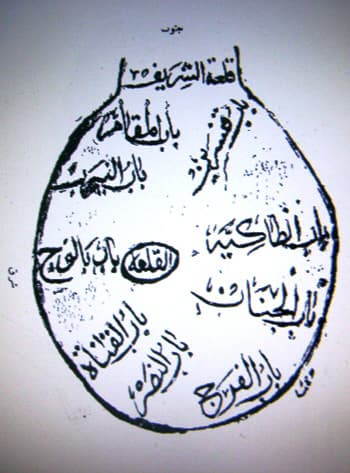 جنوب
قلعة الشريف
باب المقام
باب قنسرين
باب النيرب
باب انطاكية
القلعة
باب بالوج
شرق
باب الجنان
باب القناة
باب النصر
باب الفرج